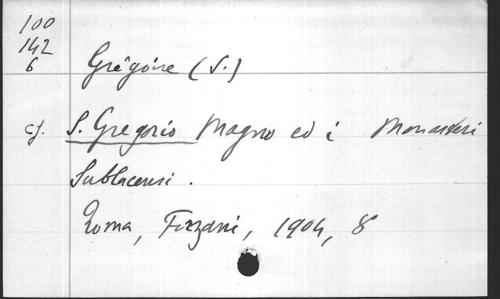 100
142
6
Grégoire (S.)
cf. S. Gregorio Magno ed i Monasteri
Sublacensi.
Roma, Forzani, 1904, 8